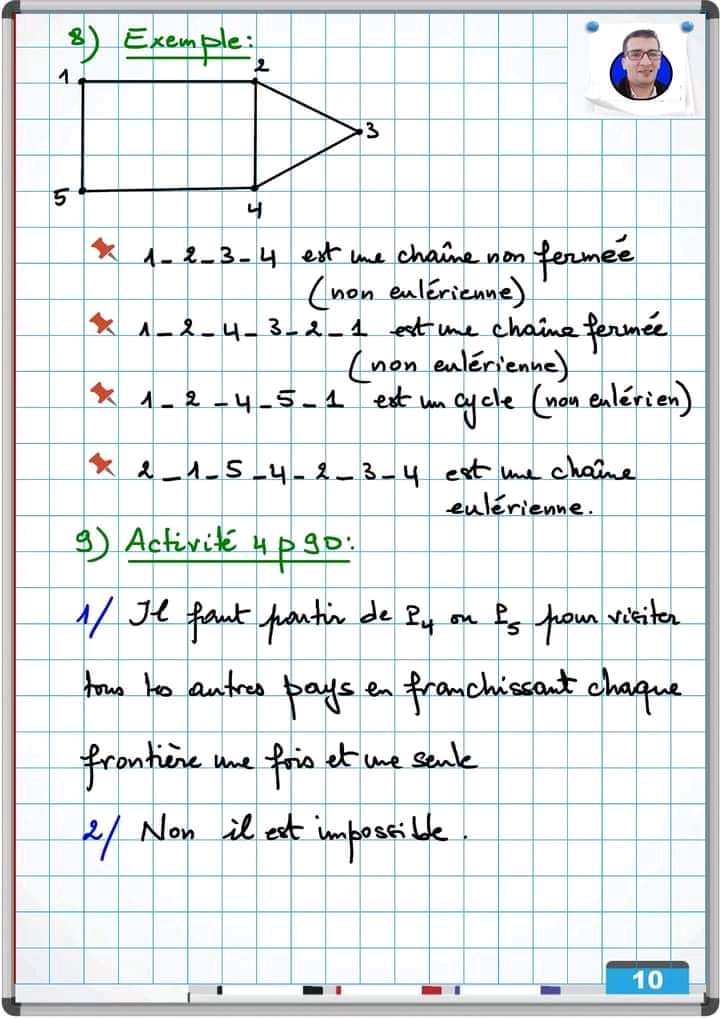 8) Exemple:
1
2
3
5
4
1-2-3-4 est une chaîne non fermeé
(non eulérienne)
1-2-4-3-2-1 est une chaîne fermée
(non eulérienne)
1-2-4-5-1 est un cycle (non eulérien)
2-1-5-4-2-3-4 est une chaîne
eulérienne.
9) Activité 4 p 90:
1/ Il faut partir de P₄ ou P₅ pour visiter
tous les autres pays en franchissant chaque
frontière une fois et une seule
2/ Non il est impossible.
10